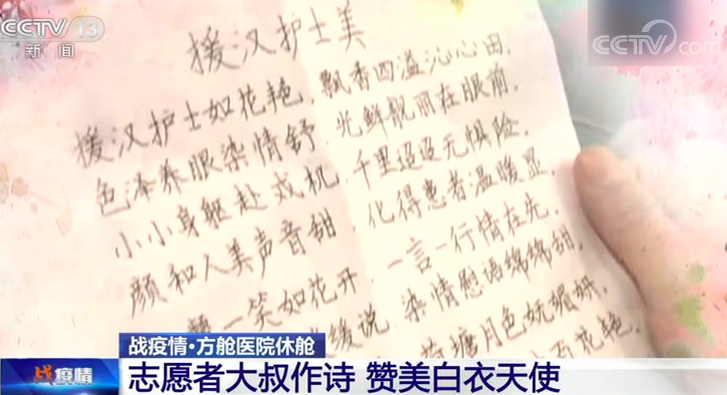 CCTV 13
新闻
CCTV.com
援汉护士美
援汉护士如花艳，飘香四溢沁心田，
色泽养眼染情舒，光鲜靓丽在眼前，
小小身躯赴戎机，千里迢迢无惧险，
颜和人美声音甜，化得患者温暖显，
一笑如花开，一言一行情在先，
缓说，染情慰语绵绵甜，
塘月色妩媚妍，
百花艳，
战疫情·方舱医院休舱
战疫情
志愿者大叔作诗 赞美白衣天使